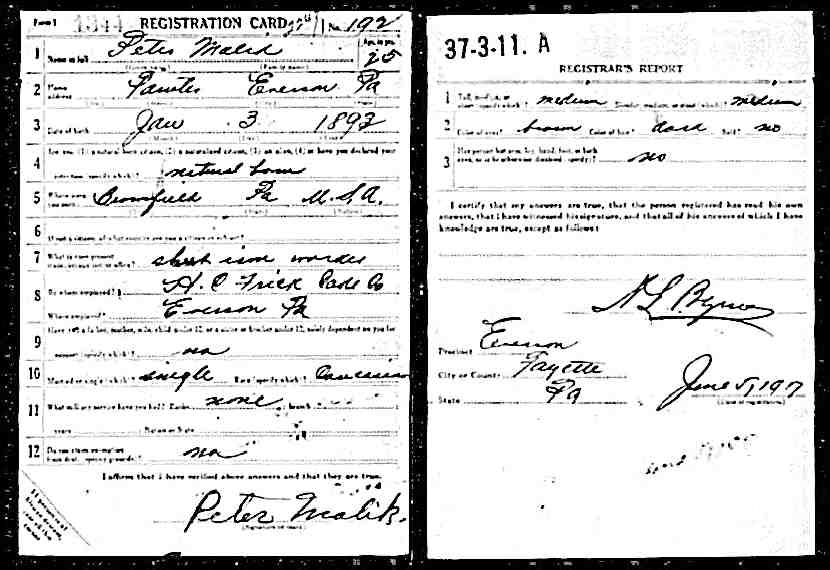 Form 1 1344 REGISTRATION CARD No. 192
1 Name in full Peter Malik Age, in yrs. 25
(Given name) (Family name)
2 Home address Everson Pa
3 Date of birth Jan 3 1892
(Month) (Day) (Year)
4 Are you (1) a natural born citizen, (2) a naturalized citizen, (3) an alien, (4) or have you declared your
intention (specify which)? natural born
5 Where were you born? Pa U.S.A.
6 If not a citizen, of what country are you a citizen or subject?
7 What is your present trade, occupation, or office? sheet iron worker
8 By whom employed? H. C Frick Co
Where employed? Everson Pa
9 Have you a father, mother, wife, child under 12, or a sister or brother under 12, solely dependent on you for
support (specify which)? no
10 Married or single (which)? single Race (specify which)? Caucasian
11 What military service have you had? Rank none ; branch
years ; Nation or State
12 Do you claim exemption from draft (specify grounds)? no
I affirm that I have verified above answers and that they are true.
Peter Malik.
(Signature or mark)
37-3-11. A
REGISTRAR'S REPORT
1 Tall, medium, or short (specify which)? medium Slender, medium, or stout (which)? medium
2 Color of eyes? brown Color of hair? dark Bald? no
3 Has person lost arm, leg, hand, foot, or both
eyes, or is he otherwise disabled (specify)? no
I certify that my answers are true, that the person registered has read his own
answers, that I have witnessed his signature, and that all of his answers of which I have
knowledge are true, except as follows:
Precinct Everson
City or County Fayette
State Pa
June 5, 1917
(Date of registration)